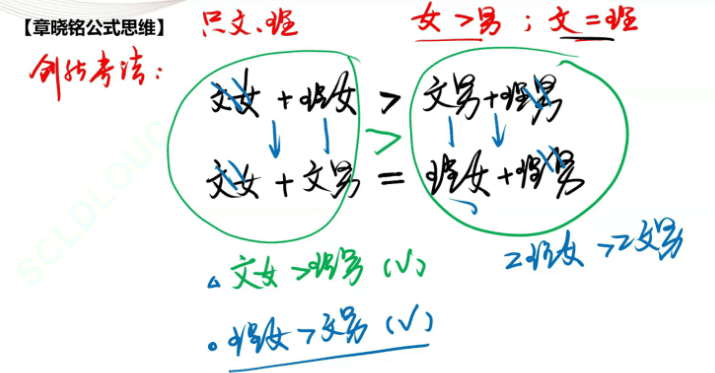 【章晓铭公式思维】 只文、理 女>男；文=理
创新考法：
文女+理女>文男+理男
>
文女+文男=理女+理男
△文女>理男（√） 2理女>2文男
。理女>文男（√）
SCLDLOUC